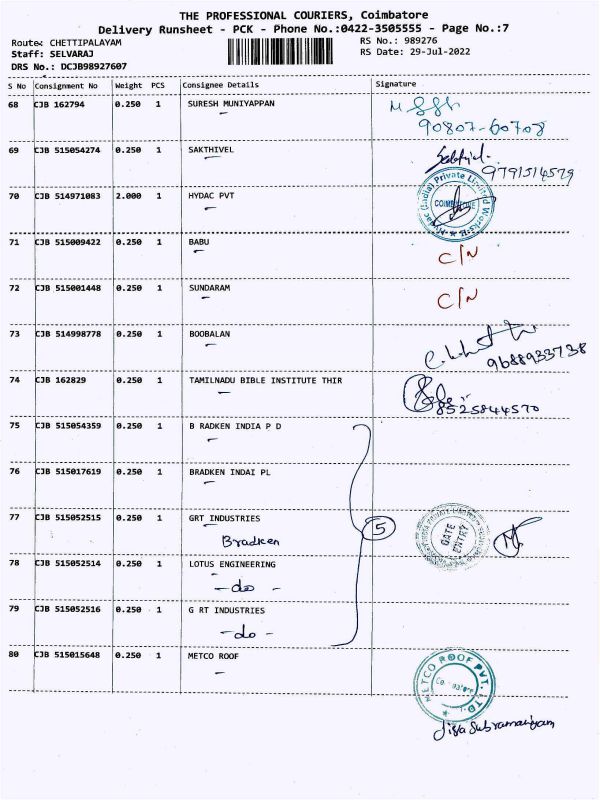 THE PROFESSIONAL COURIERS, Coimbatore
Delivery Runsheet - PCK - Phone No.:0422-3505555 - Page No.:7
Route: CHETTIPALAYAM
RS No.: 989276
Staff: SELVARAJ
RS Date: 29-Jul-2022
DRS No.: DCJB98927607
S No Consignment No Weight PCS Consignee Details Signature
68 CJB 162794 0.250 1 SURESH MUNIYAPPAN
90807-60708
69 CJB 515054274 0.250 1 SAKTHIVEL
9791514579
70 CJB 514971083 2.000 1 HYDAC PVT
Hydac (India) Private Limited
71 CJB 515009422 0.250 1 BABU C/N
72 CJB 515001448 0.250 1 SUNDARAM C/N
73 CJB 514998778 0.250 1 BOOBALAN
9688933738
74 CJB 162829 0.250 1 TAMILNADU BIBLE INSTITUTE THIR
8525844570
75 CJB 515054359 0.250 1 B RADKEN INDIA P D
76 CJB 515017619 0.250 1 BRADKEN INDAI PL
77 CJB 515052515 0.250 1 GRT INDUSTRIES
Bradken
5
GATE ENTRY
78 CJB 515052514 0.250 1 LOTUS ENGINEERING
-do-
79 CJB 515052516 0.250 1 G RT INDUSTRIES
-do-
80 CJB 515015648 0.250 1 METCO ROOF
METCO ROOF PVT. LTD.